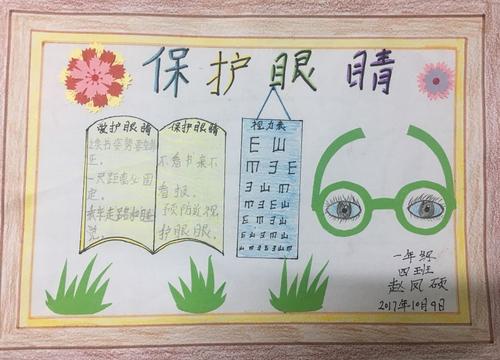 保护眼睛
做护眼睛
读书姿势要端
正.
一尺距离必固
定.
保护眼睛
不看书来不
看报.
预防近视
护眼眼.
视力表
E Ш
一年级
四班
赵凤硕
2017年10月9日